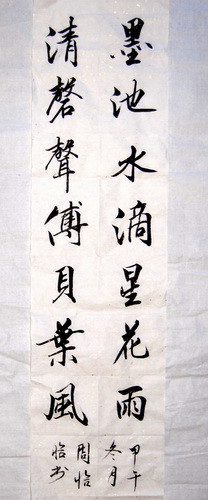 墨池水滴星花雨
清磬聲傳貝葉風
甲午
冬月
周怡
怡书